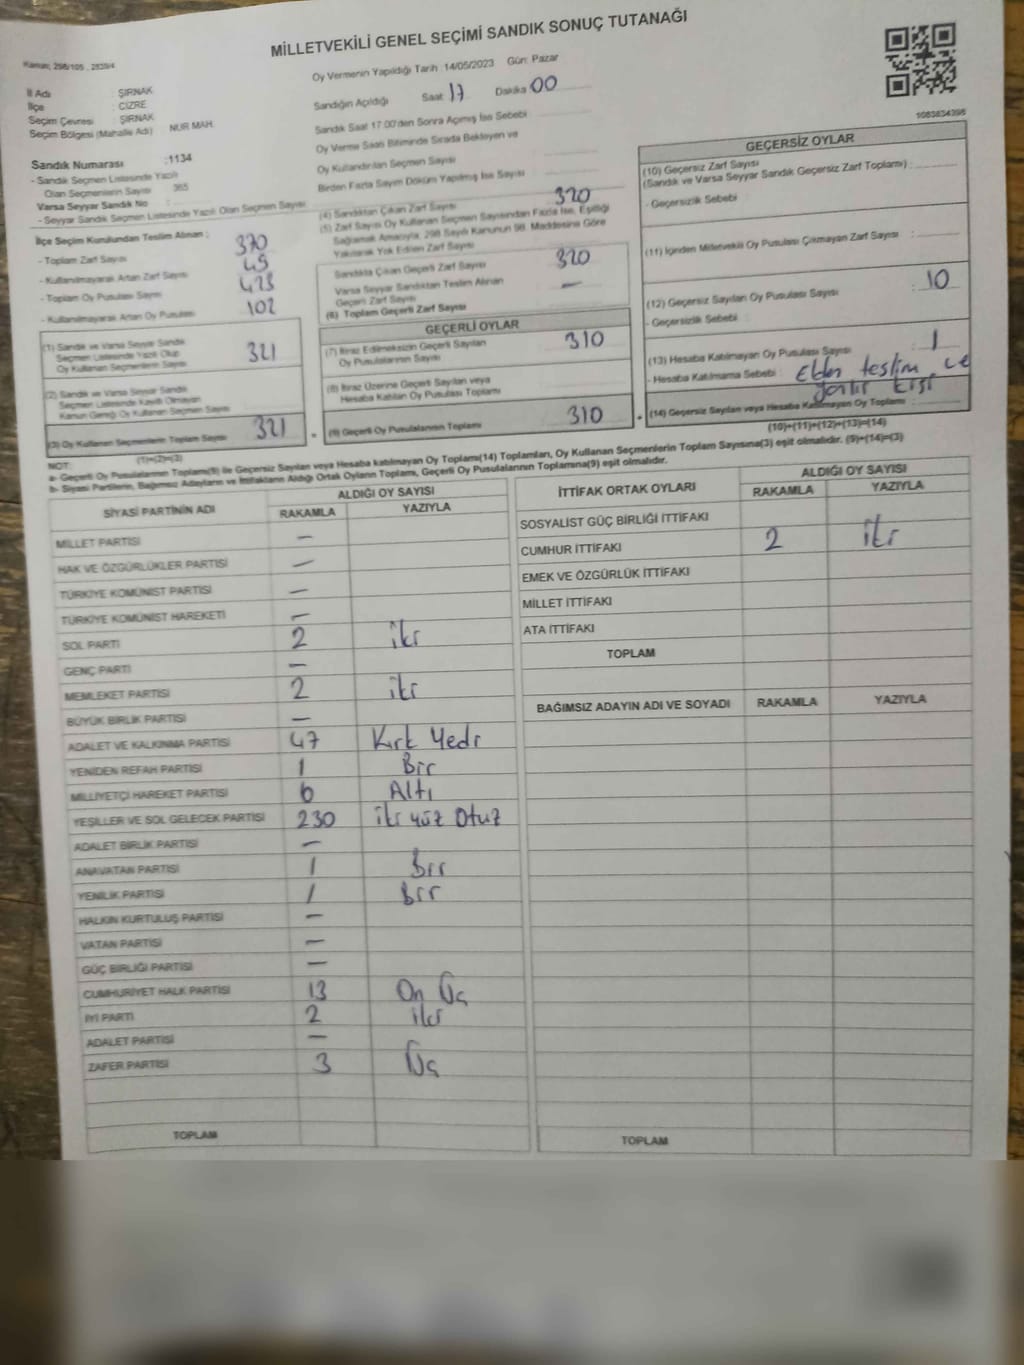 MİLLETVEKİLİ GENEL SEÇİMİ SANDIK SONUÇ TUTANAĞI
Kanun: 298/105 , 2839/4
Oy Vermenin Yapıldığı Tarih : 14/05/2023 Gün: Pazar
İl Adı : ŞIRNAK
İlçe : CİZRE
Seçim Çevresi : ŞIRNAK
Seçim Bölgesi (Mahalle Adı) NUR MAH.
Sandık Numarası :1134
- Sandık Seçmen Listesinde Yazılı
Olan Seçmenlerin Sayısı 365
Varsa Seyyar Sandık No :
- Seyyar Sandık Seçmen Listesinde Yazılı Olan Seçmen Sayısı
İlçe Seçim Kurulundan Teslim Alınan :
- Toplam Zarf Sayısı 370
- Kullanılmayarak Artan Zarf Sayısı 49
- Toplam Oy Pusulası Sayısı 423
- Kullanılmayarak Artan Oy Pusulası 102
(1) Sandık ve Varsa Seyyar Sandık
Seçmen Listesinde Yazılı Olup
Oy Kullanan Seçmenlerin Sayısı 321
(2) Sandık ve Varsa Seyyar Sandık
Seçmen Listesinde Kayıtlı Olmayan
Kanun Gereği Oy Kullanan Seçmen Sayısı
(3) Oy Kullanan Seçmenlerin Toplam Sayısı 321
(1)+(2)=(3)
Sandığın Açıldığı Saat 17 Dakika 00
Sandık Saat 17:00'den Sonra Açımış İse Sebebi
Oy Verme Saati Bitiminde Sırada Bekleyen ve
Oy Kullandırılan Seçmen Sayısı
Birden Fazla Sayım Döküm Yapılmış İse Sayısı
(4) Sandıktan Çıkan Zarf Sayısı 320
(5) Zarf Sayısı Oy Kullanan Seçmen Sayısından Fazla İse, Eşitliği
Sağlamak Amacıyla, 298 Sayılı Kanunun 98. Maddesine Göre
Yakılarak Yok Edilen Zarf Sayısı
Sandıkta Çıkan Geçerli Zarf Sayısı 320
Varsa Seyyar Sandıktan Teslim Alınan
Geçerli Zarf Sayısı —
(6) Toplam Geçerli Zarf Sayısı
GEÇERLİ OYLAR
(7) İtiraz Edilmeksizin Geçerli Sayılan
Oy Pusulalarının Sayısı 310
(8) İtiraz Üzerine Geçerli Sayılan veya
Hesaba Katılan Oy Pusulası Toplamı
(9) Geçerli Oy Pusulalarının Toplamı 310
1083834398
GEÇERSİZ OYLAR
(10) Geçersiz Zarf Sayısı
(Sandık ve Varsa Seyyar Sandık Geçersiz Zarf Toplamı) :
- Geçersizlik Sebebi :
(11) İçinden Milletvekili Oy Pusulası Çıkmayan Zarf Sayısı :
(12) Geçersiz Sayılan Oy Pusulası Sayısı : 10
- Geçersizlik Sebebi :
(13) Hesaba Katılmayan Oy Pusulası Sayısı : 1
- Hesaba Katılmama Sebebi : Elden teslim, ve
kişi
(14) Geçersiz Sayılan veya Hesaba Katılmayan Oy Toplamı :
(10)+(11)+(12)+(13)=(14)
NOT:
a- Geçerli Oy Pusulalarının Toplamı(9) ile Geçersiz Sayılan veya Hesaba katılmayan Oy Toplamı(14) Toplamları, Oy Kullanan Seçmenlerin Toplam Sayısına(3) eşit olmalıdır. (9)+(14)=(3)
b- Siyasi Partilerin, Bağımsız Adayların ve İttifakların Aldığı Ortak Oyların Toplamı, Geçerli Oy Pusulalarının Toplamına(9) eşit olmalıdır.
SİYASİ PARTİNİN ADI ALDIĞI OY SAYISI
RAKAMLA YAZIYLA
MİLLET PARTİSİ —
HAK VE ÖZGÜRLÜKLER PARTİSİ —
TÜRKİYE KOMÜNİST PARTİSİ —
TÜRKİYE KOMÜNİST HAREKETİ —
SOL PARTİ 2 iki
GENÇ PARTİ —
MEMLEKET PARTİSİ 2 iki
BÜYÜK BİRLİK PARTİSİ —
ADALET VE KALKINMA PARTİSİ 47 Kırk Yedi
YENİDEN REFAH PARTİSİ 1 Bir
MİLLİYETÇİ HAREKET PARTİSİ 6 Altı
YEŞİLLER VE SOL GELECEK PARTİSİ 230 iki yüz Otuz
ADALET BİRLİK PARTİSİ —
ANAVATAN PARTİSİ 1 Bir
YENİLİK PARTİSİ 1 Bir
HALKIN KURTULUŞ PARTİSİ —
VATAN PARTİSİ —
GÜÇ BİRLİĞİ PARTİSİ —
CUMHURİYET HALK PARTİSİ 13 On Üç
İYİ PARTİ 2 iki
ADALET PARTİSİ —
ZAFER PARTİSİ 3 Üç
TOPLAM
İTTİFAK ORTAK OYLARI ALDIĞI OY SAYISI
RAKAMLA YAZIYLA
SOSYALİST GÜÇ BİRLİĞİ İTTİFAKI
CUMHUR İTTİFAKI 2 iki
EMEK VE ÖZGÜRLÜK İTTİFAKI
MİLLET İTTİFAKI
ATA İTTİFAKI
TOPLAM
BAĞIMSIZ ADAYIN ADI VE SOYADI RAKAMLA YAZIYLA
TOPLAM